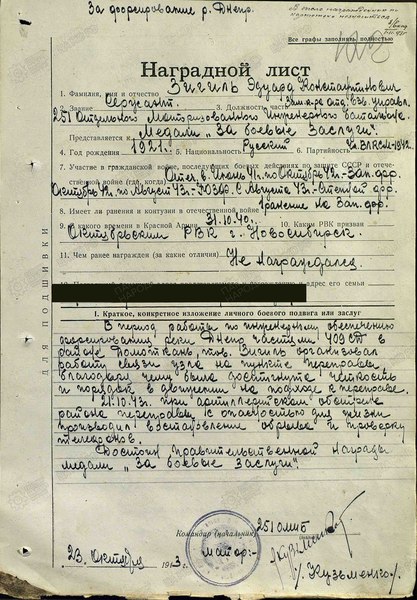 За форсирование р. Днепр.
Все графы заполнять полностью
Наградной лист
1. Фамилия, имя и отчество Зигиль Эдуард Константинович
2. Звание Сержант. 3. Должность, часть
251 Отдельного Моторизованного Инженерного батальона.
Представляется к Медали „За боевые Заслуги".
4. Год рождения 1921г. 5. Национальность Русский 6. Партийность
7. Участие в гражданской войне, последующих боевых действиях по защите СССР и отечественной войне (где, когда) Отеч. с Июль 41г. по Октябрь 42- Зап. фр.
Октябрь 42. по Август 43г. - фр. с Августа 43- Степной фр.
8. Имеет ли ранения и контузии в отечественной войне на Зап. фр.
9. С какого времени в Красной Армии 31.10.40. 10. Каким РВК призван
Октябрьским РВК г. Новосибирск.
11. Чем ранее награжден (за какие отличия) Не Награждался
адрес его семьи
I. Краткое, конкретное изложение личного боевого подвига или заслуг
В период работы по инженерному обеспечению
форсирования реки Днепр частями 409 СД в
районе тов. Зигиль организовал
работу связи узла на пункте переправы,
благодаря чему была достигнута четкость
и порядок в движении на подходе к переправе.
21.10.43г. при артиллерийском обстреле
района переправы с опасностью для жизни
производил восстановление обрыва и проверку
телефонов.
Достоин правительственной награды
медали „За боевые заслуги".
Командир (начальник) 251 омиб
майор:-
/Кузьменко/
23. Октября 1943 г.
ДЛЯ ПОДШИВКИ